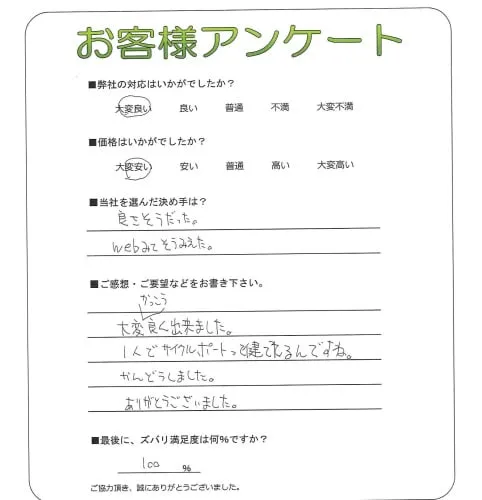 お客様アンケート
■弊社の対応はいかがでしたか？
大変良い 良い 普通 不満 大変不満
■価格はいかがでしたか？
大変安い 安い 普通 高い 大変高い
■当社を選んだ決め手は？
良さそうだった。
webみてそうみえた。
■ご感想・ご要望などをお書き下さい。
かっこう
大変良く出来ました。
1人でサイクルポートって建てれるんですね。
かんどうしました。
ありがとうございました。
■最後に、ズバリ満足度は何%ですか？
100 %
ご協力頂き、誠にありがとうございました。